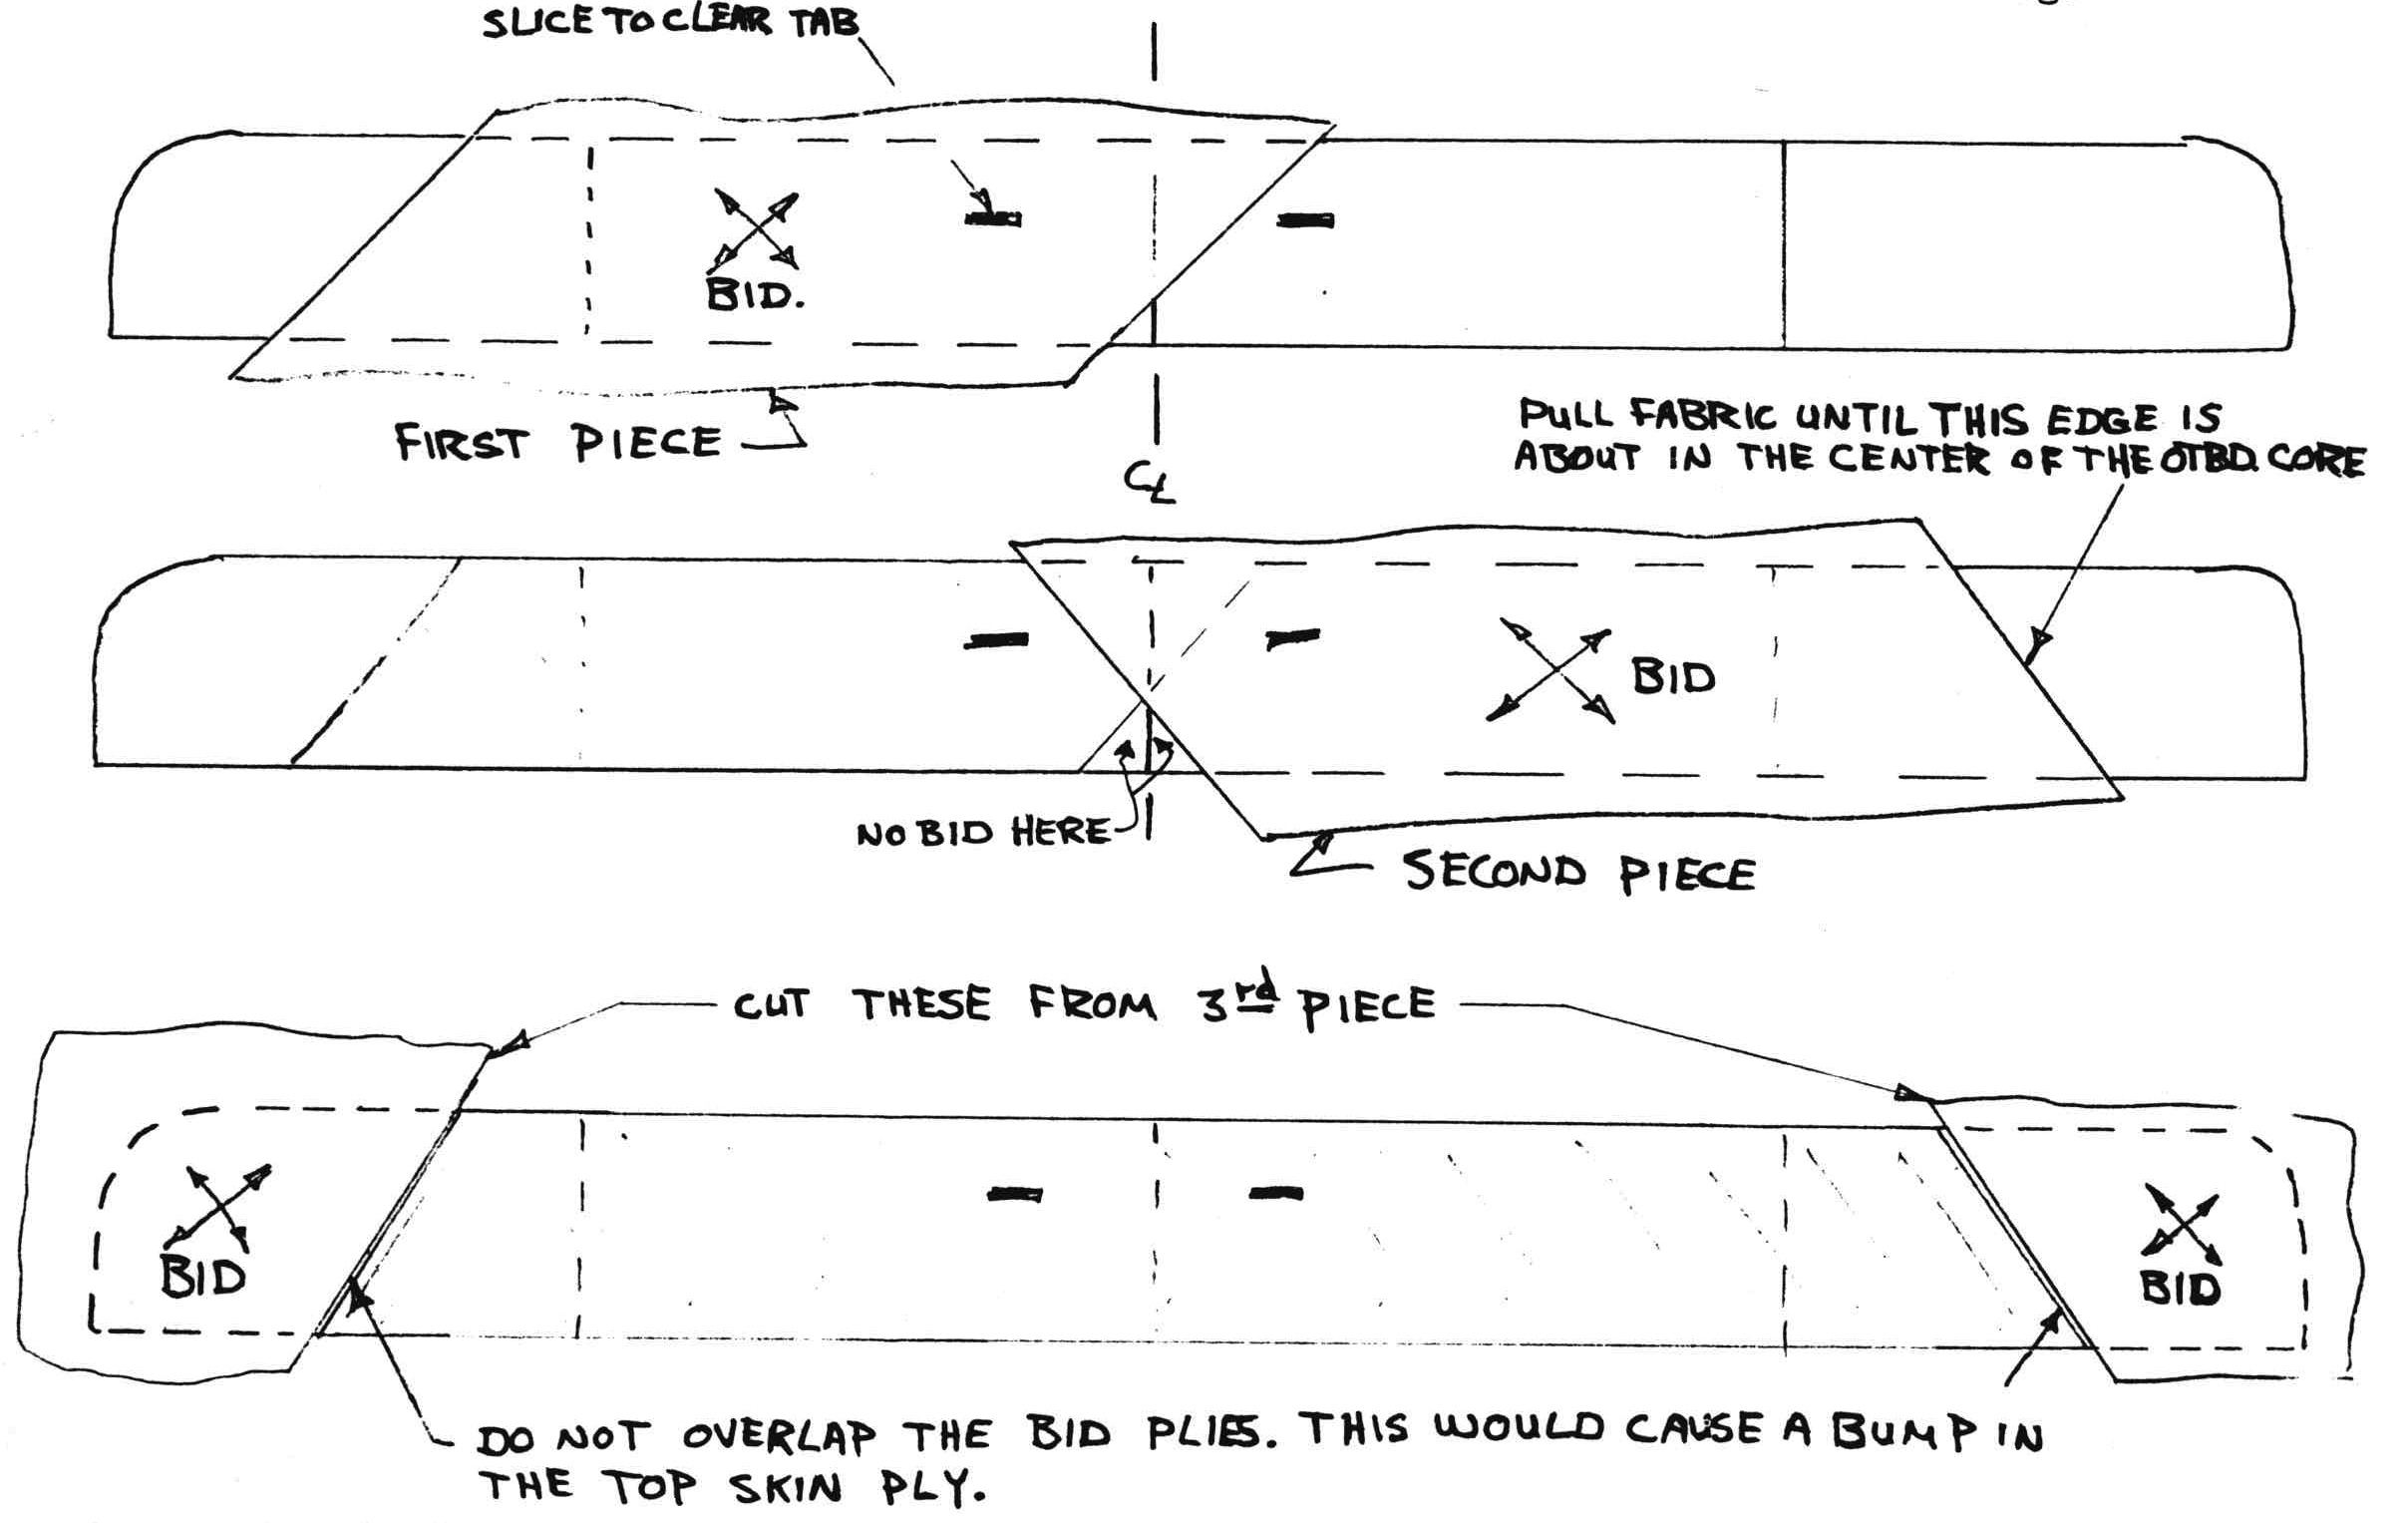 SLICE TO CLEAR TAB
BID.
FIRST PIECE
CL
PULL FABRIC UNTIL THIS EDGE IS
ABOUT IN THE CENTER OF THE OTBD. CORE
BID
NO BID HERE
SECOND PIECE
CUT THESE FROM 3rd PIECE
BID
BID
DO NOT OVERLAP THE BID PLIES. THIS WOULD CAUSE A BUMP IN
THE TOP SKIN PLY.